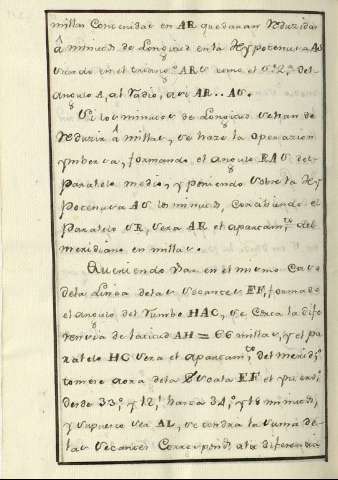 millas Contenidas en AR quedaran reducidas
â minutos de Longitud en la Hypotenusa AS
usando en el triang.º ARS como el S.º 2.º del
angulo A, al radio, asi AR.. AS.
Si los minutos de Longitud se han de
reducir â millas, se hara la operacion
ynbersa, formando el angulo RAS del
Paralelo medio, y poniendo sobre la Hy
potenusa AS los minutos, tirando el
Paralelo SR, sera AR el apartam.to del
meridiano en millas.
Queriendo usar en el mismo Caso
de la Linea de las secantes EF, formado
el angulo del Rumbo HAC, se Cerca la dife
rencia de latitud AH = 66 millas, y el pa
ralelo HC sera el apartam.to del merid.º
tomese aora de la Escala EF el
desde 33.º y 12.' hasta 34.º y 18 minutos,
y supuesto ser AL, se tendra la suma de
las secantes Correspond.s a la diferencia